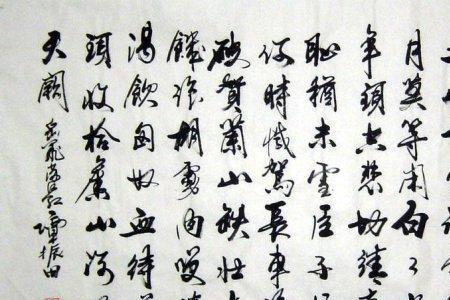 月莫等闲白了
年頭空悲切靖
恥猶未雪臣子
何時憾駕長車
破賀蘭山缺壮
饑餐胡虜肉笑
渴飲匈奴血待
頭收拾舊山河
天闕
岳飛滿江紅
振田